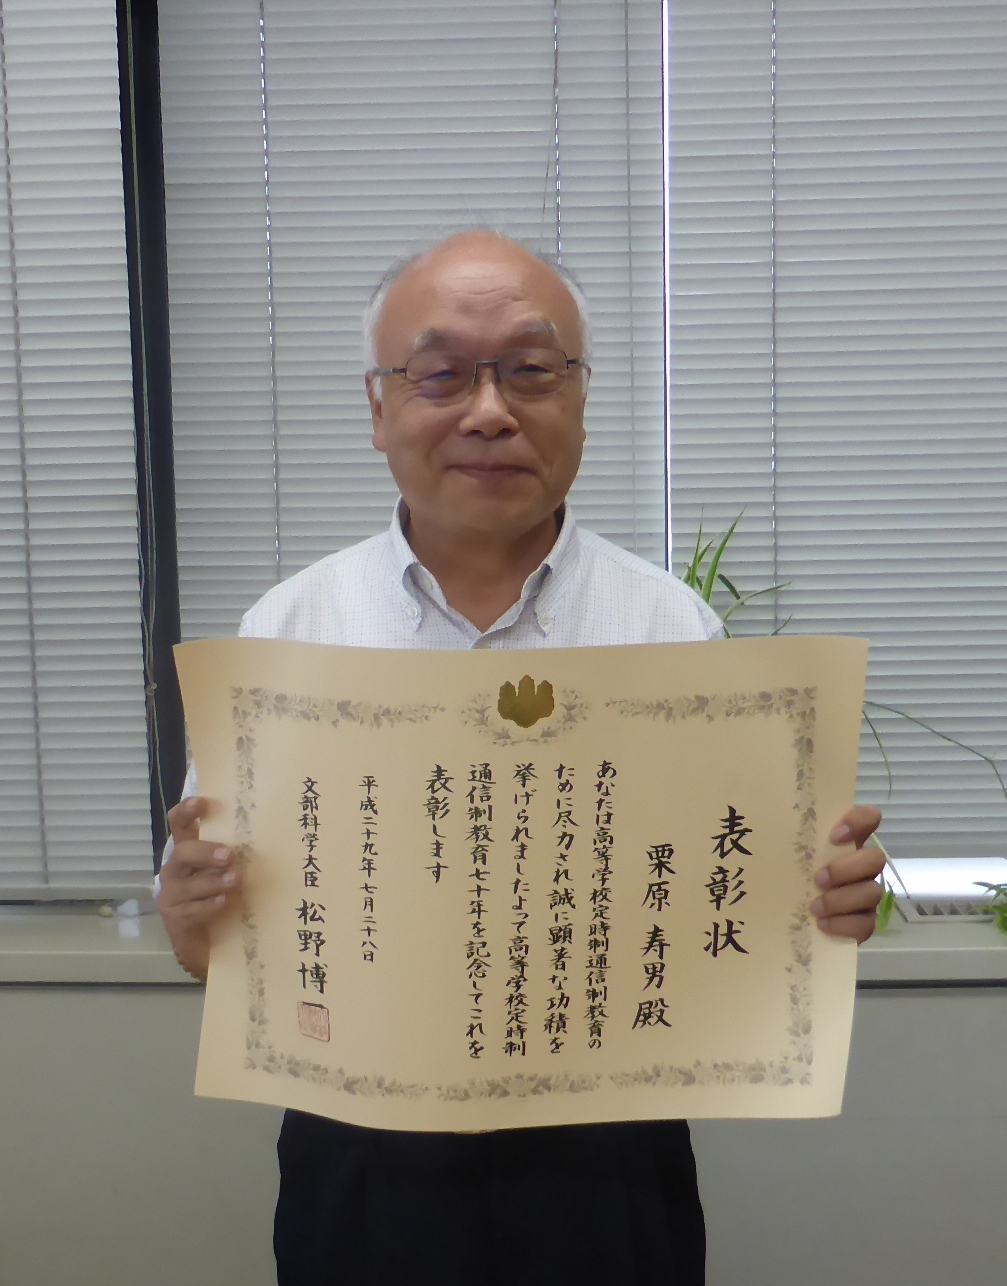 表彰状
栗原寿男殿
あなたは高等学校定時制通信制教育の
ために尽力され誠に顕著な功績を
挙げられましたよって高等学校定時制
通信制教育七十年を記念してこれを
表彰します
平成二十九年七月二十八日
文部科学大臣 松野博一